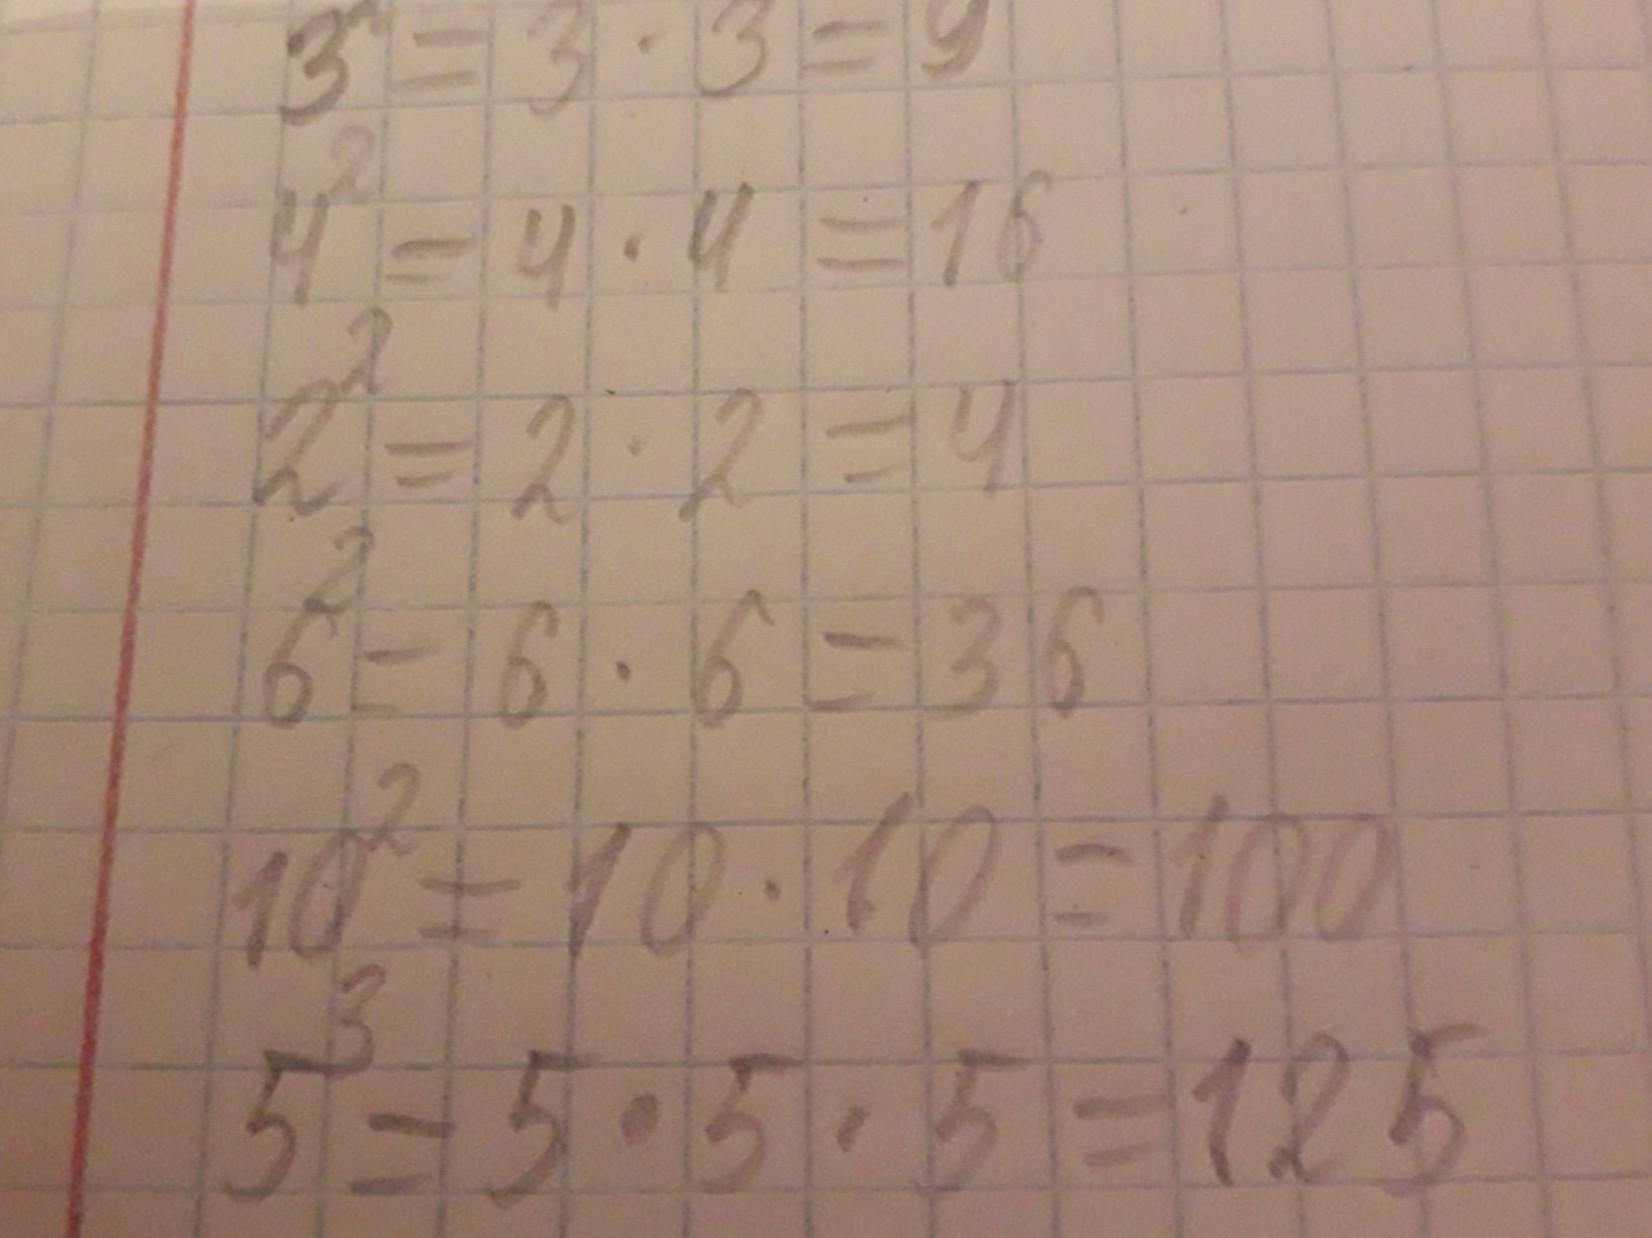 3² = 3 · 3 = 9
4² = 4 · 4 = 16
2² = 2 · 2 = 4
6² = 6 · 6 = 36
10² = 10 · 10 = 100
5³ = 5 · 5 · 5 = 125